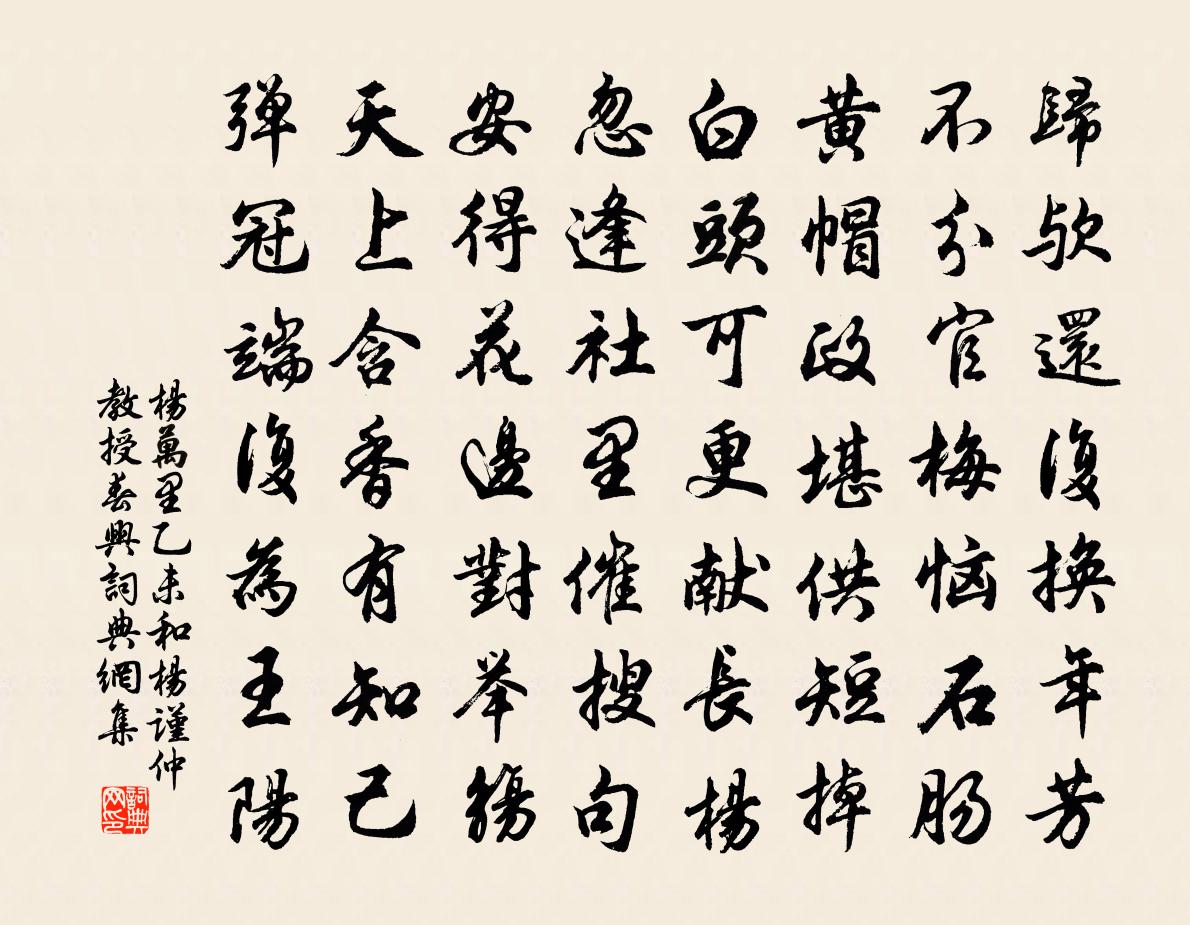 歸欤還復換年芳
不分官梅惱石腸
黄帽政堪供短掉
白頭可更献長楊
忽逢社里催搜句
安得花邊對举觴
天上含香有知己
弹冠端復為王陽
楊萬里乙未和楊謹仲
教授春興詞典網集
詞典网印